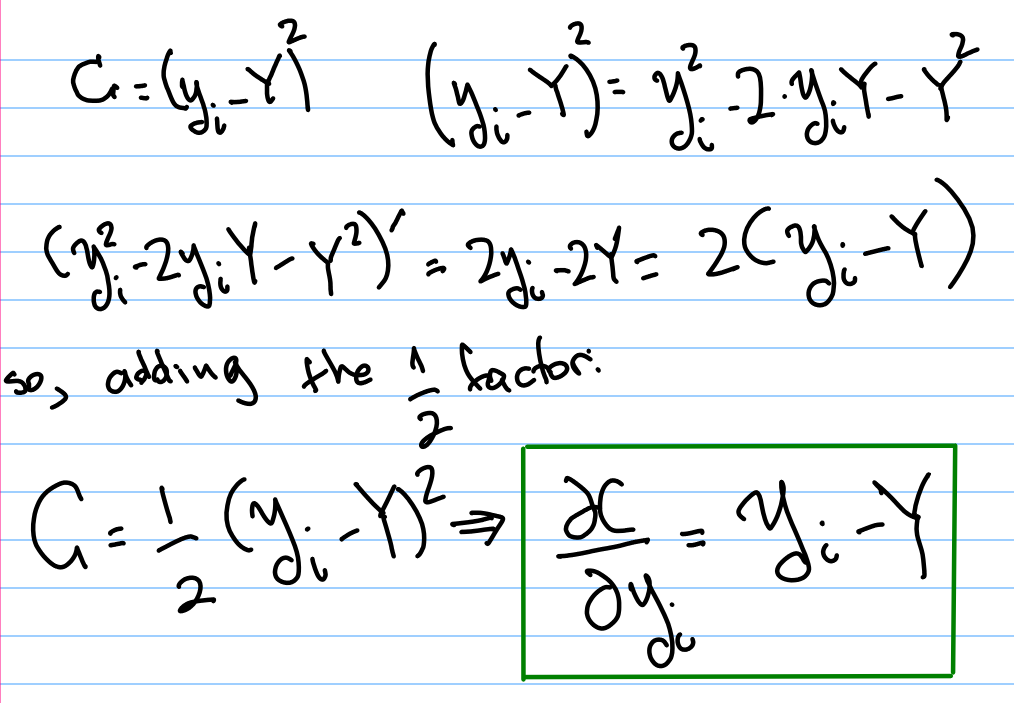 C = (yᵢ - Y)² (yᵢ - Y)² = yᵢ² - 2·yᵢY - Y²
(yᵢ² - 2yᵢY - Y²)' = 2yᵢ - 2Y = 2(yᵢ - Y)
so, adding the 1/2 factor:
C = 1/2 (yᵢ - Y)² ⇒ ∂C/∂yᵢ = yᵢ - Y